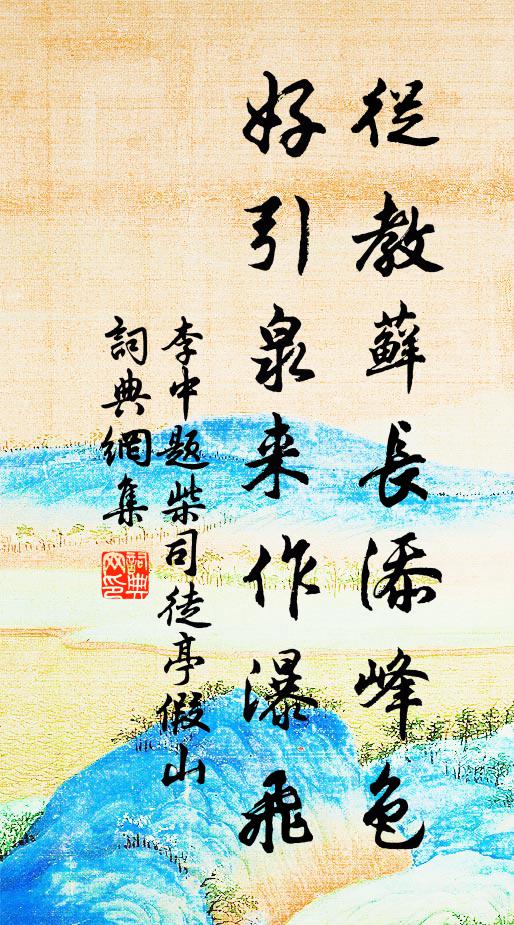 從教蘚長添峰色
好引泉来作瀑飛
李中題柴司徒亭假山
詞典網集
詞典
网印